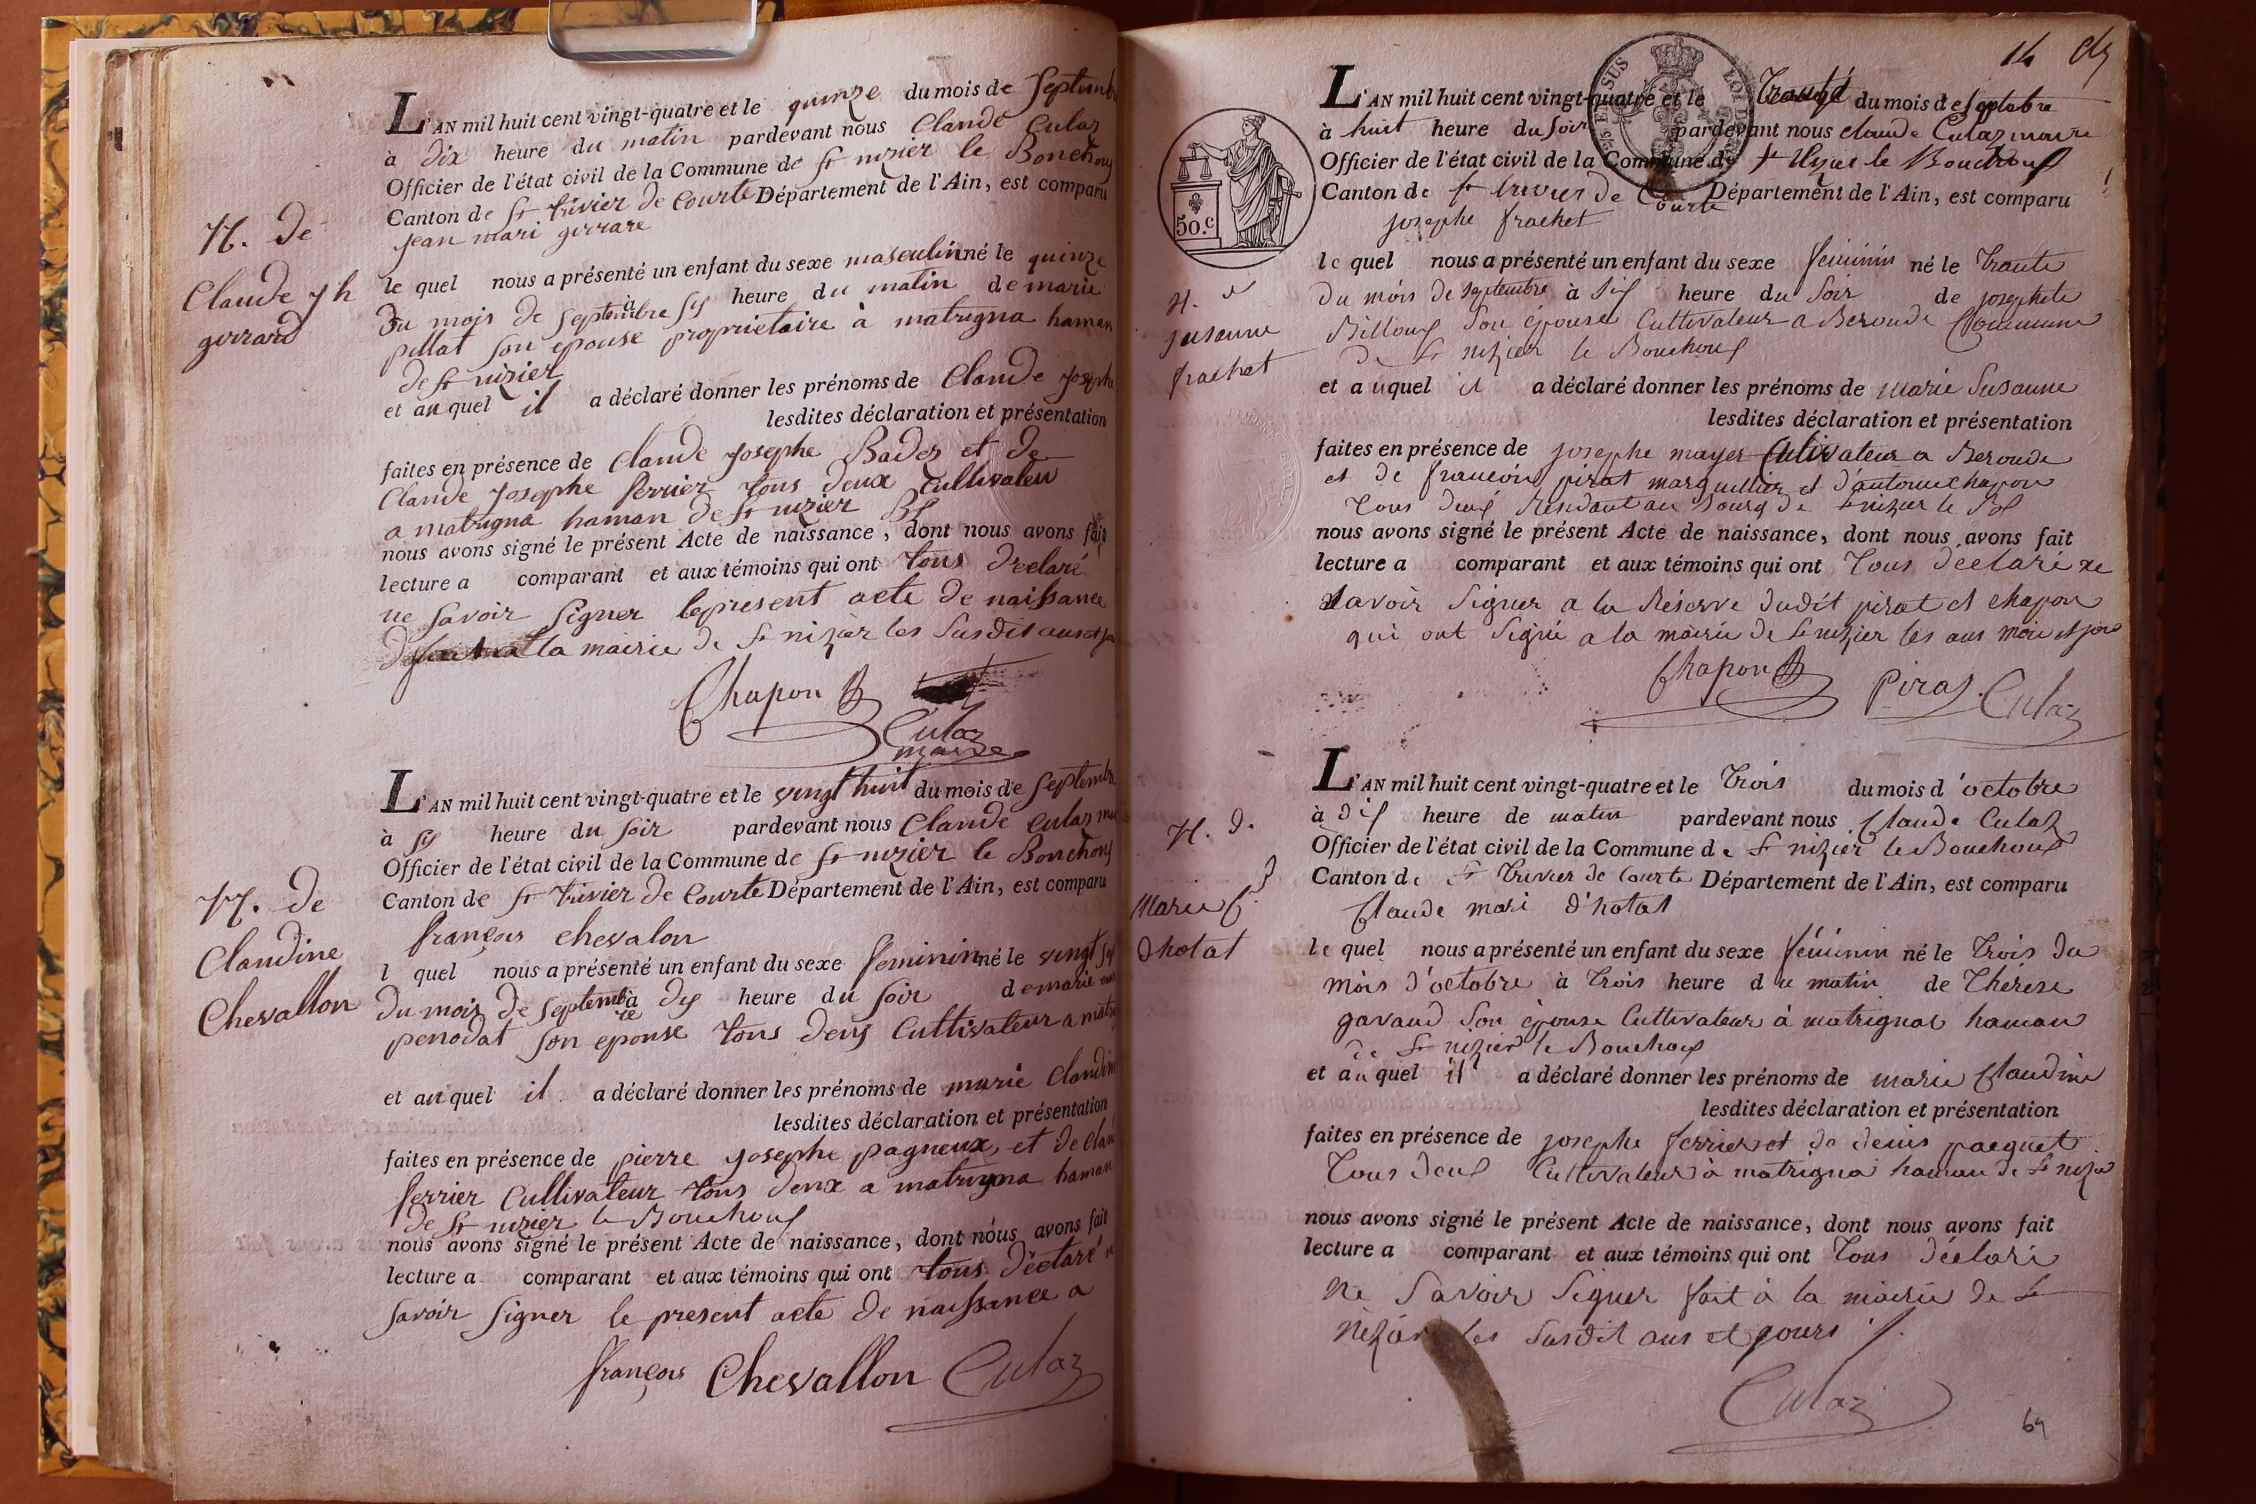 L'AN mil huit cent vingt-quatre et le quinze du mois de Septemb
à dix heure du matin pardevant nous Claude Culaz
Officier de l'état civil de la Commune de St nizier le Bouchoux
Canton de St trivier de Courte Département de l'Ain, est comparu
jean mari
N. de
Claude jh
gerrard
le quel nous a présenté un enfant du sexe masculin né le quinze
du mois de septembre à six heure du matin de marie
pillat son epouse proprietaire à matrigna haman
de St nizier
et au quel il a déclaré donner les prénoms de Claude Josephe
lesdites déclaration et présentation
faites en présence de Claude Josephe Badez et de
Claude Josephe ferrier tous deux Cultivateu
a matrigna haman de St nizier
nous avons signé le présent Acte de naissance, dont nous avons fait
lecture a comparant et aux témoins qui ont tous declaré
ne savoir signer le present acte de naissance
la mairie de St nizier les susdit ans et
Chapon
Culaz
maire
L'AN mil huit cent vingt-quatre et le vingt huit du mois de septemb
à six heure du soir pardevant nous Claude Culaz
Officier de l'état civil de la Commune de St nizier le Bouchoux
Canton de St trivier de Courte Département de l'Ain, est comparu
françois chevalon
N. de
Claudine
Chevallon
l quel nous a présenté un enfant du sexe feminin né le vingt
du mois de septembre à dix heure du soir de marie
penodat son epouse tous deux Cultivateur a
et au quel il a déclaré donner les prénoms de marie Claudine
lesdites déclaration et présentation
faites en présence de pierre josephe pagneux, et de
ferrier Cultivateur tous deux a matrigna haman
de St nizier le Bouchoux
nous avons signé le présent Acte de naissance, dont nous avons fait
lecture a comparant et aux témoins qui ont tous déclaré
savoir signer le present acte de naissance a
françois Chevallon Culaz
14
L'AN mil huit cent vingt-quatre et le trante du mois de septobre
à huit heure du soir pardevant nous claude Culaz maire
Officier de l'état civil de la Commune de St Nizier le Bouchoux
Canton de St trivier de Courte Département de l'Ain, est comparu
josephe frachet
50.C
N. d
susanne
frachet
le quel nous a présenté un enfant du sexe féminin né le trante
du mois de septembre à six heure du soir de josephete
Billoux son épouse Cultivateur a Beroude Commune
de St nizier le Bouchoux
et a uquel il a déclaré donner les prénoms de marie susanne
lesdites déclaration et présentation
faites en présence de josephe mayer Cultivateur a Beroude
et de françois pirat marguillier et d'antoine chapon
tous deux Résidant au Bourg de St nizier le
nous avons signé le présent Acte de naissance, dont nous avons fait
lecture a comparant et aux témoins qui ont tous déclaré ne
savoir signer a la Réserve dudit pirat et chapon
qui ont signé a la mairie de St nizier les ans mois et jour
Chapon Pirat Culaz
L'AN mil huit cent vingt-quatre et le trois du mois d'octobre
à dix heure de matin pardevant nous Claude Culaz
Officier de l'état civil de la Commune de St nizier le Bouchoux
Canton de St trivier de Courte Département de l'Ain, est comparu
Claude mari d'hotat
N. d.
Marie C.
Dhotat
le quel nous a présenté un enfant du sexe féminin né le trois du
mois d'octobre à trois heure du matin de Thérèse
gavaud son épouse Cultivateur à matrignat haman
de St nizier le Bouchoux
et au quel il a déclaré donner les prénoms de marie Claudine
lesdites déclaration et présentation
faites en présence de josephe ferrier et de denis pacquet
tous deux Cultivateur à matrigna haman de St nizier
nous avons signé le présent Acte de naissance, dont nous avons fait
lecture a comparant et aux témoins qui ont tous déclaré
ne savoir signer fait à la mairie de St
nizier les susdit ans et jours
Culaz
69